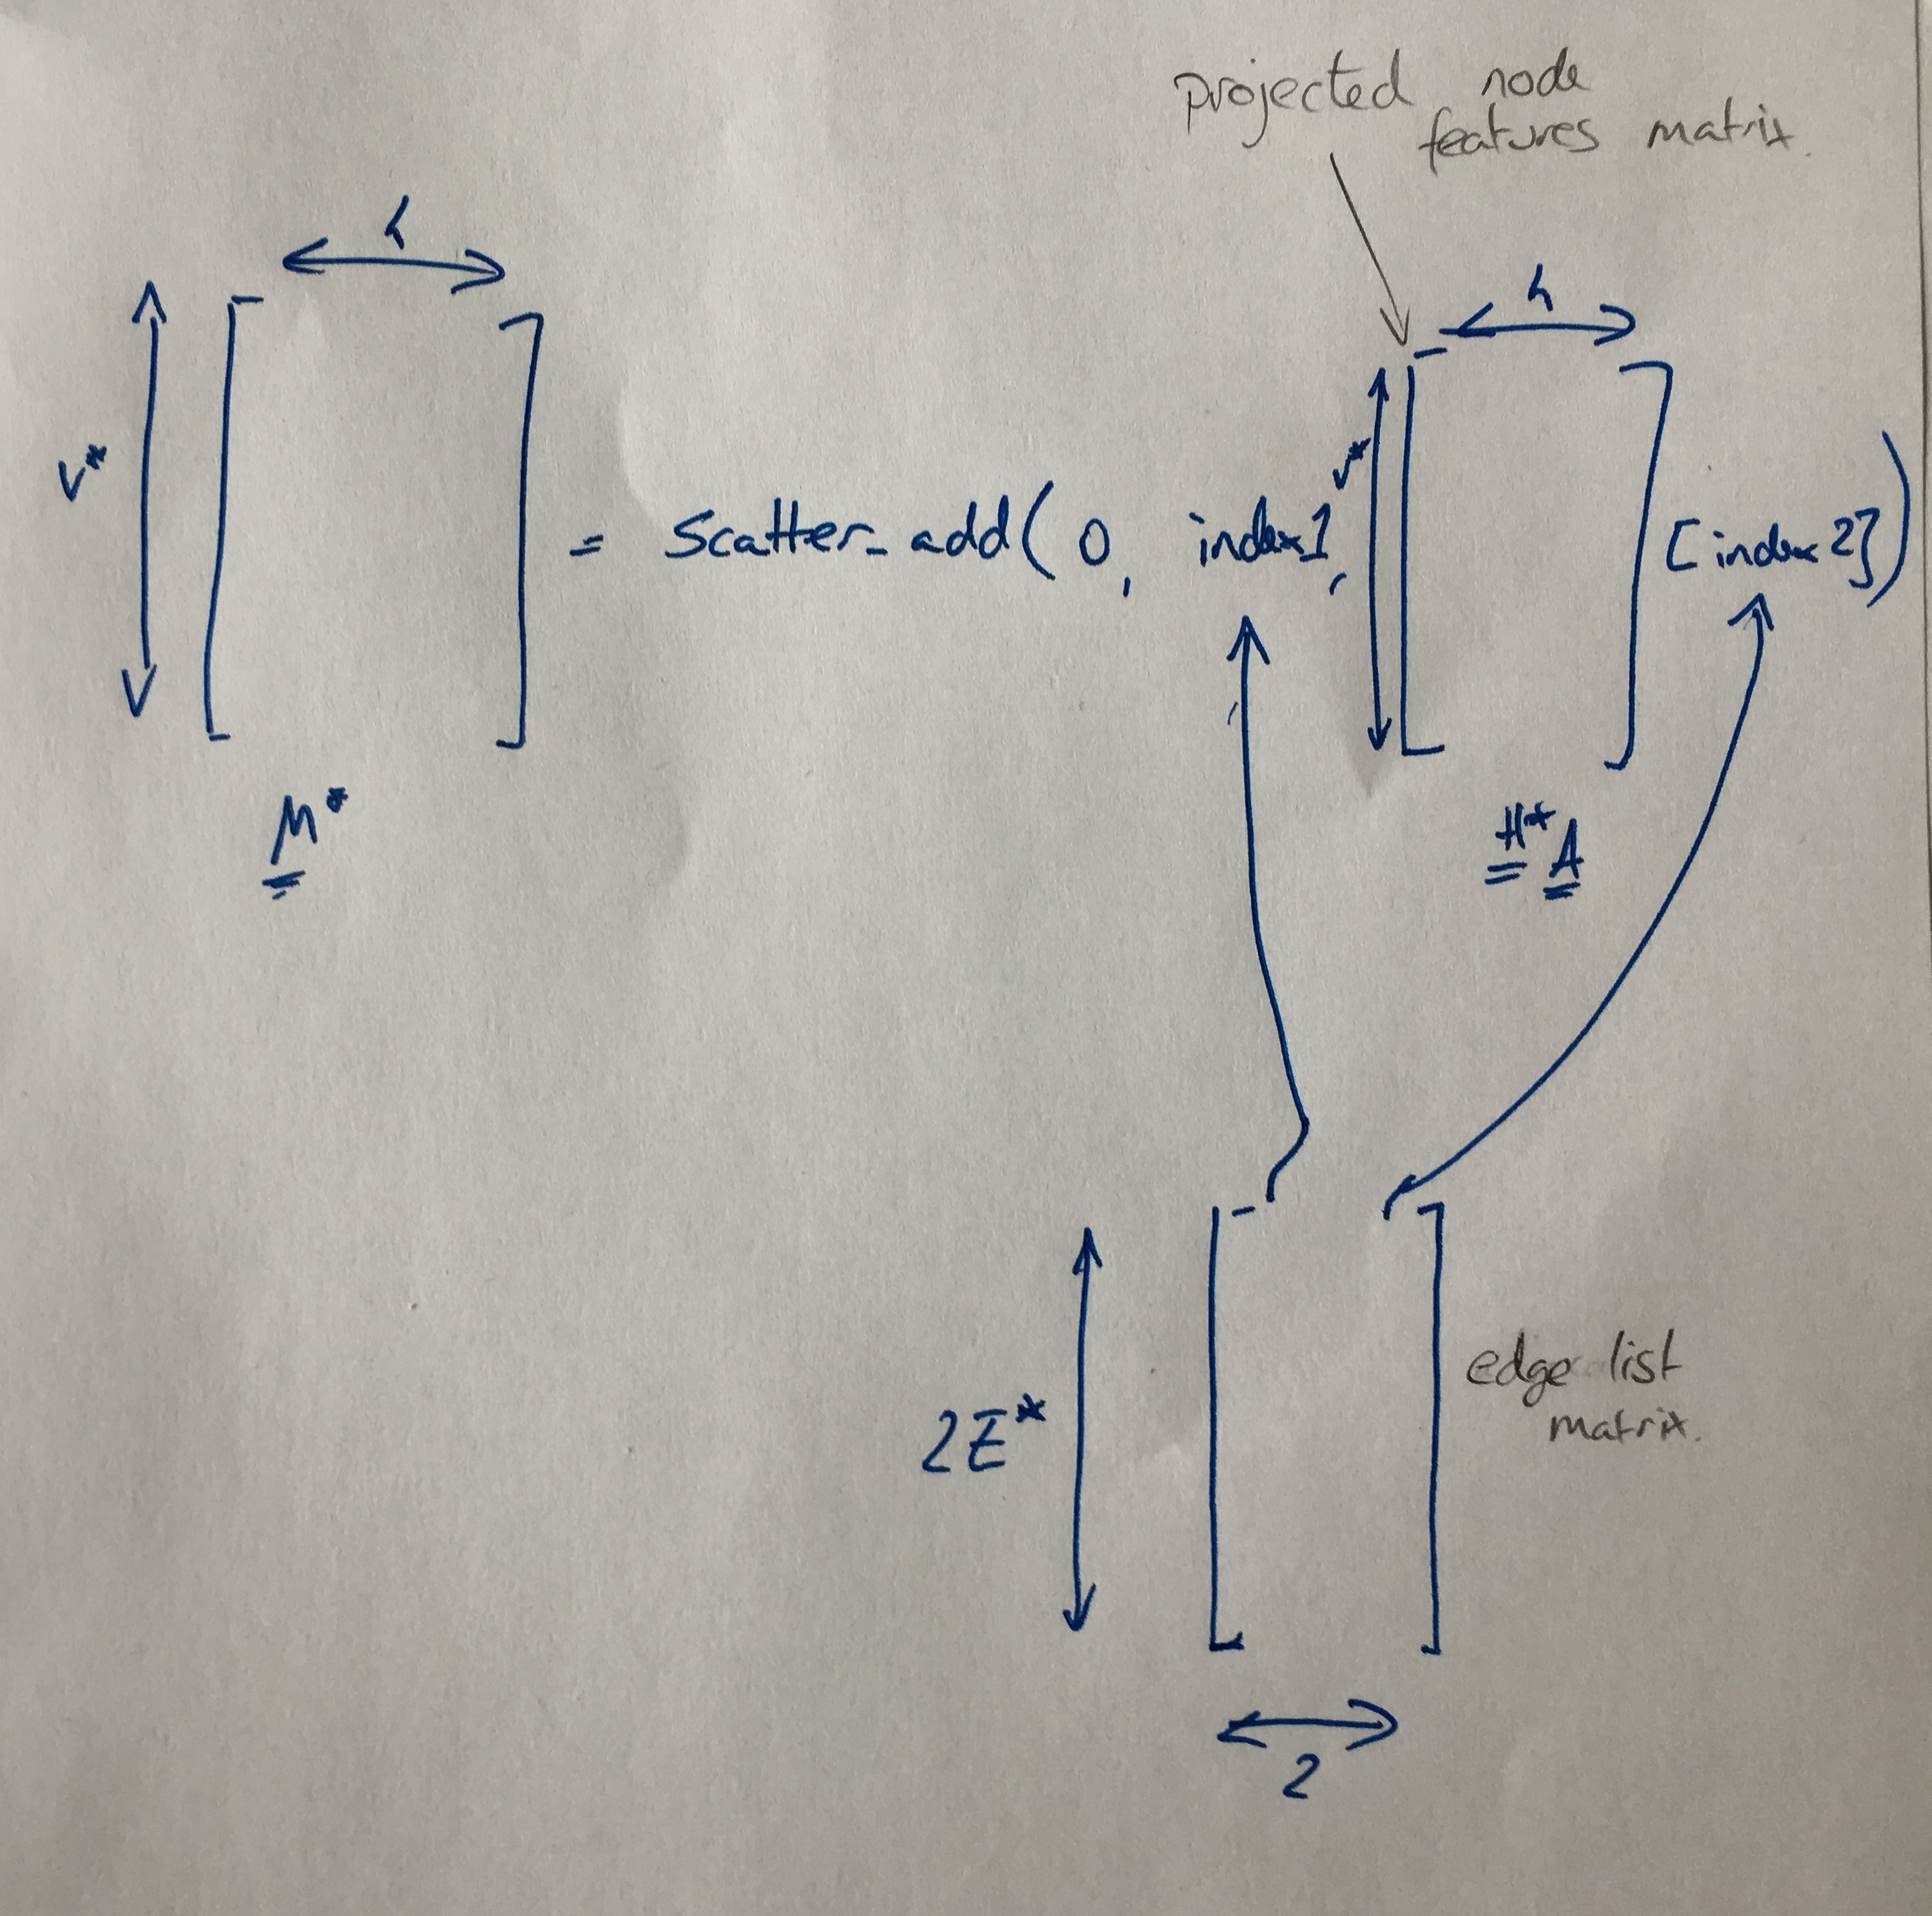 projected node
features matrix.
h
h
V*
V*
= Scatter_add( 0, index1, [index2])
M*
H* A
2E*
edge list
matrix.
2